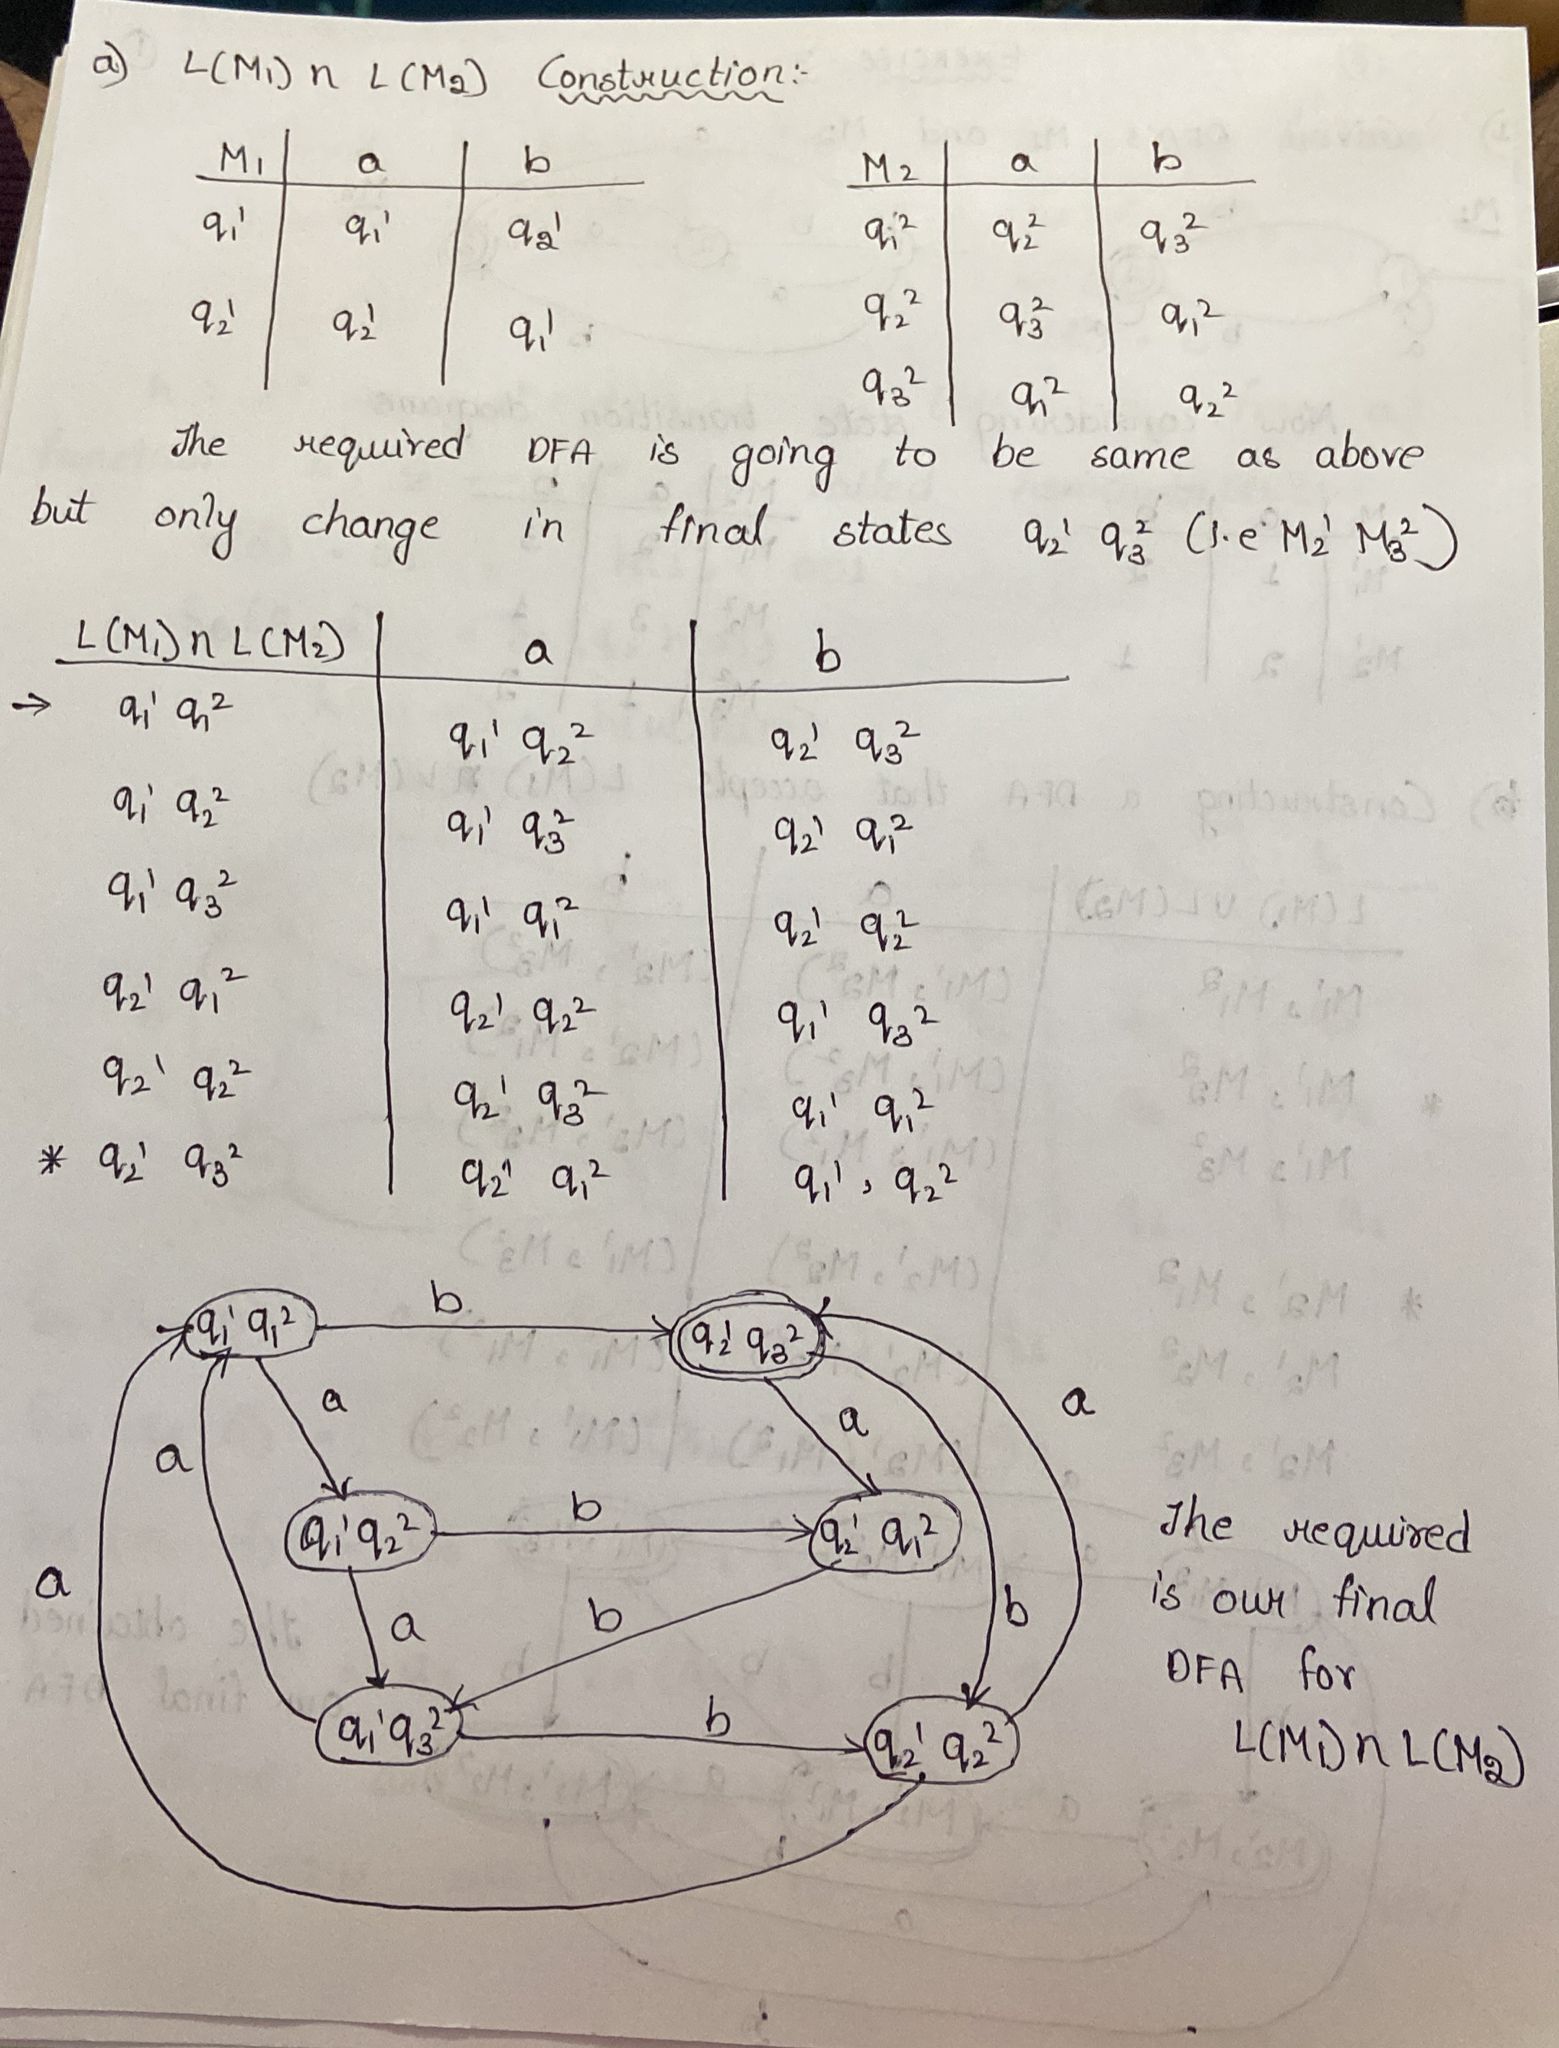 a) L(M₁) ∩ L(M₂) Construction:-
M₁ | a | b
q₁¹ | q₁¹ | q₂¹
q₂¹ | q₂¹ | q₁¹
M₂ | a | b
q₁² | q₂² | q₃²
q₂² | q₃² | q₁²
q₃² | q₁² | q₂²
The required DFA is going to be same as above
but only change in final states q₂¹ q₃² (i.e M₂¹ M₃²)
L(M₁) ∩ L(M₂) | a | b
→ q₁¹ q₁² | q₁¹ q₂² | q₂¹ q₃²
q₁¹ q₂² | q₁¹ q₃² | q₂¹ q₁²
q₁¹ q₃² | q₁¹ q₁² | q₂¹ q₂²
q₂¹ q₁² | q₂¹ q₂² | q₁¹ q₃²
q₂¹ q₂² | q₂¹ q₃² | q₁¹ q₁²
* q₂¹ q₃² | q₂¹ q₁² | q₁¹, q₂²
q₁¹ q₁² b q₂¹ q₃²
a a a
a
q₁¹ q₂² b q₂¹ q₁²
a a b b
q₁¹ q₃² b q₂¹ q₂²
The required
is our final
DFA for
L(M₁) ∩ L(M₂)